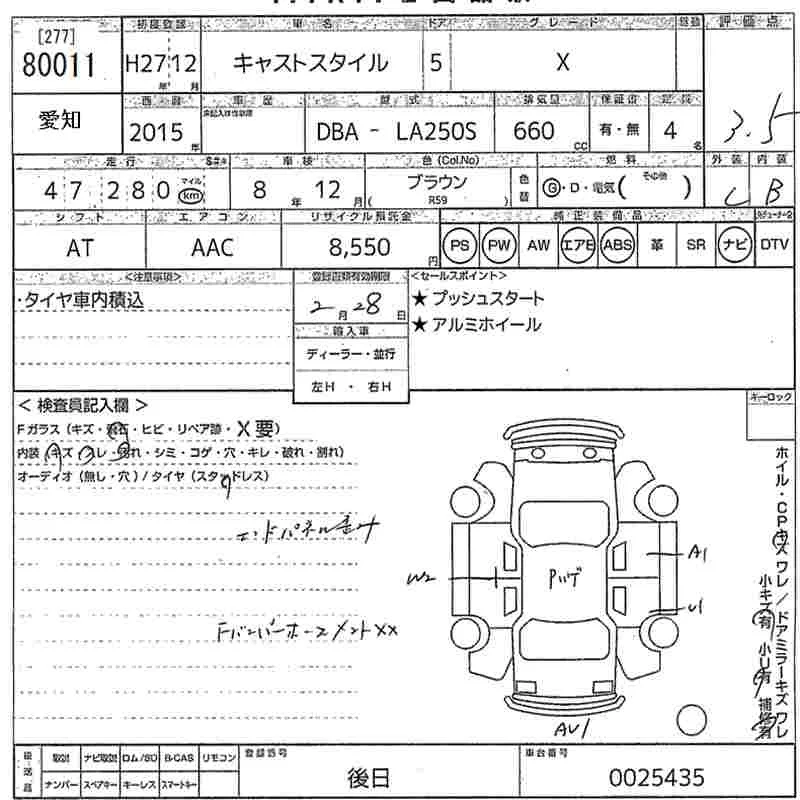 [277]
80011
初度登録 車名 ドア グレード 評価点
H27 12 年 月 キャストスタイル 5 X
3.5
愛知
西暦 車歴 型式 排気量 保証書 定員
2015 年 DBA - LA250S 660 CC 有・無 4 名
走行 車検 色(Col.No) 燃料 外装 内装
47280 マイル km 8 年 12 月 ブラウン ( R59 ) 色替 G・D・電気( その他 ) C B
シフト エアコン リサイクル預託金 純正装備品
AT AAC 8,550 円 PS PW AW エアB ABS 革 SR ナビ DTV
<注意事項> 登録書類有効期限 <セールスポイント>
・タイヤ車内積込
2 月 28 日
★ プッシュスタート
★ アルミホイール
輸入車
ディーラー・並行
左H ・ 右H
< 検査員記入欄 >
キーロック
Fガラス(キズ・飛石・ヒビ・リペア跡・X要)
内装(キズ・スレ・汚れ・シミ・コゲ・穴・キレ・破れ・割れ)
オーディオ(無し・穴)/タイヤ(スタッドレス)
エンドパネル歪み
A1
W2
Pハゲ
U1
Fバンパーホースメント××
AU1
ホイル・CPキズワレ/ドアミラーキズワレ
小キズ有 小U有 補修有
後送品 取説 ナビ取説 ロム/SD B-CAS リモコン
ナンバー スペアキー キーレス スマートキー
登録番号 車台番号
後日 0025435